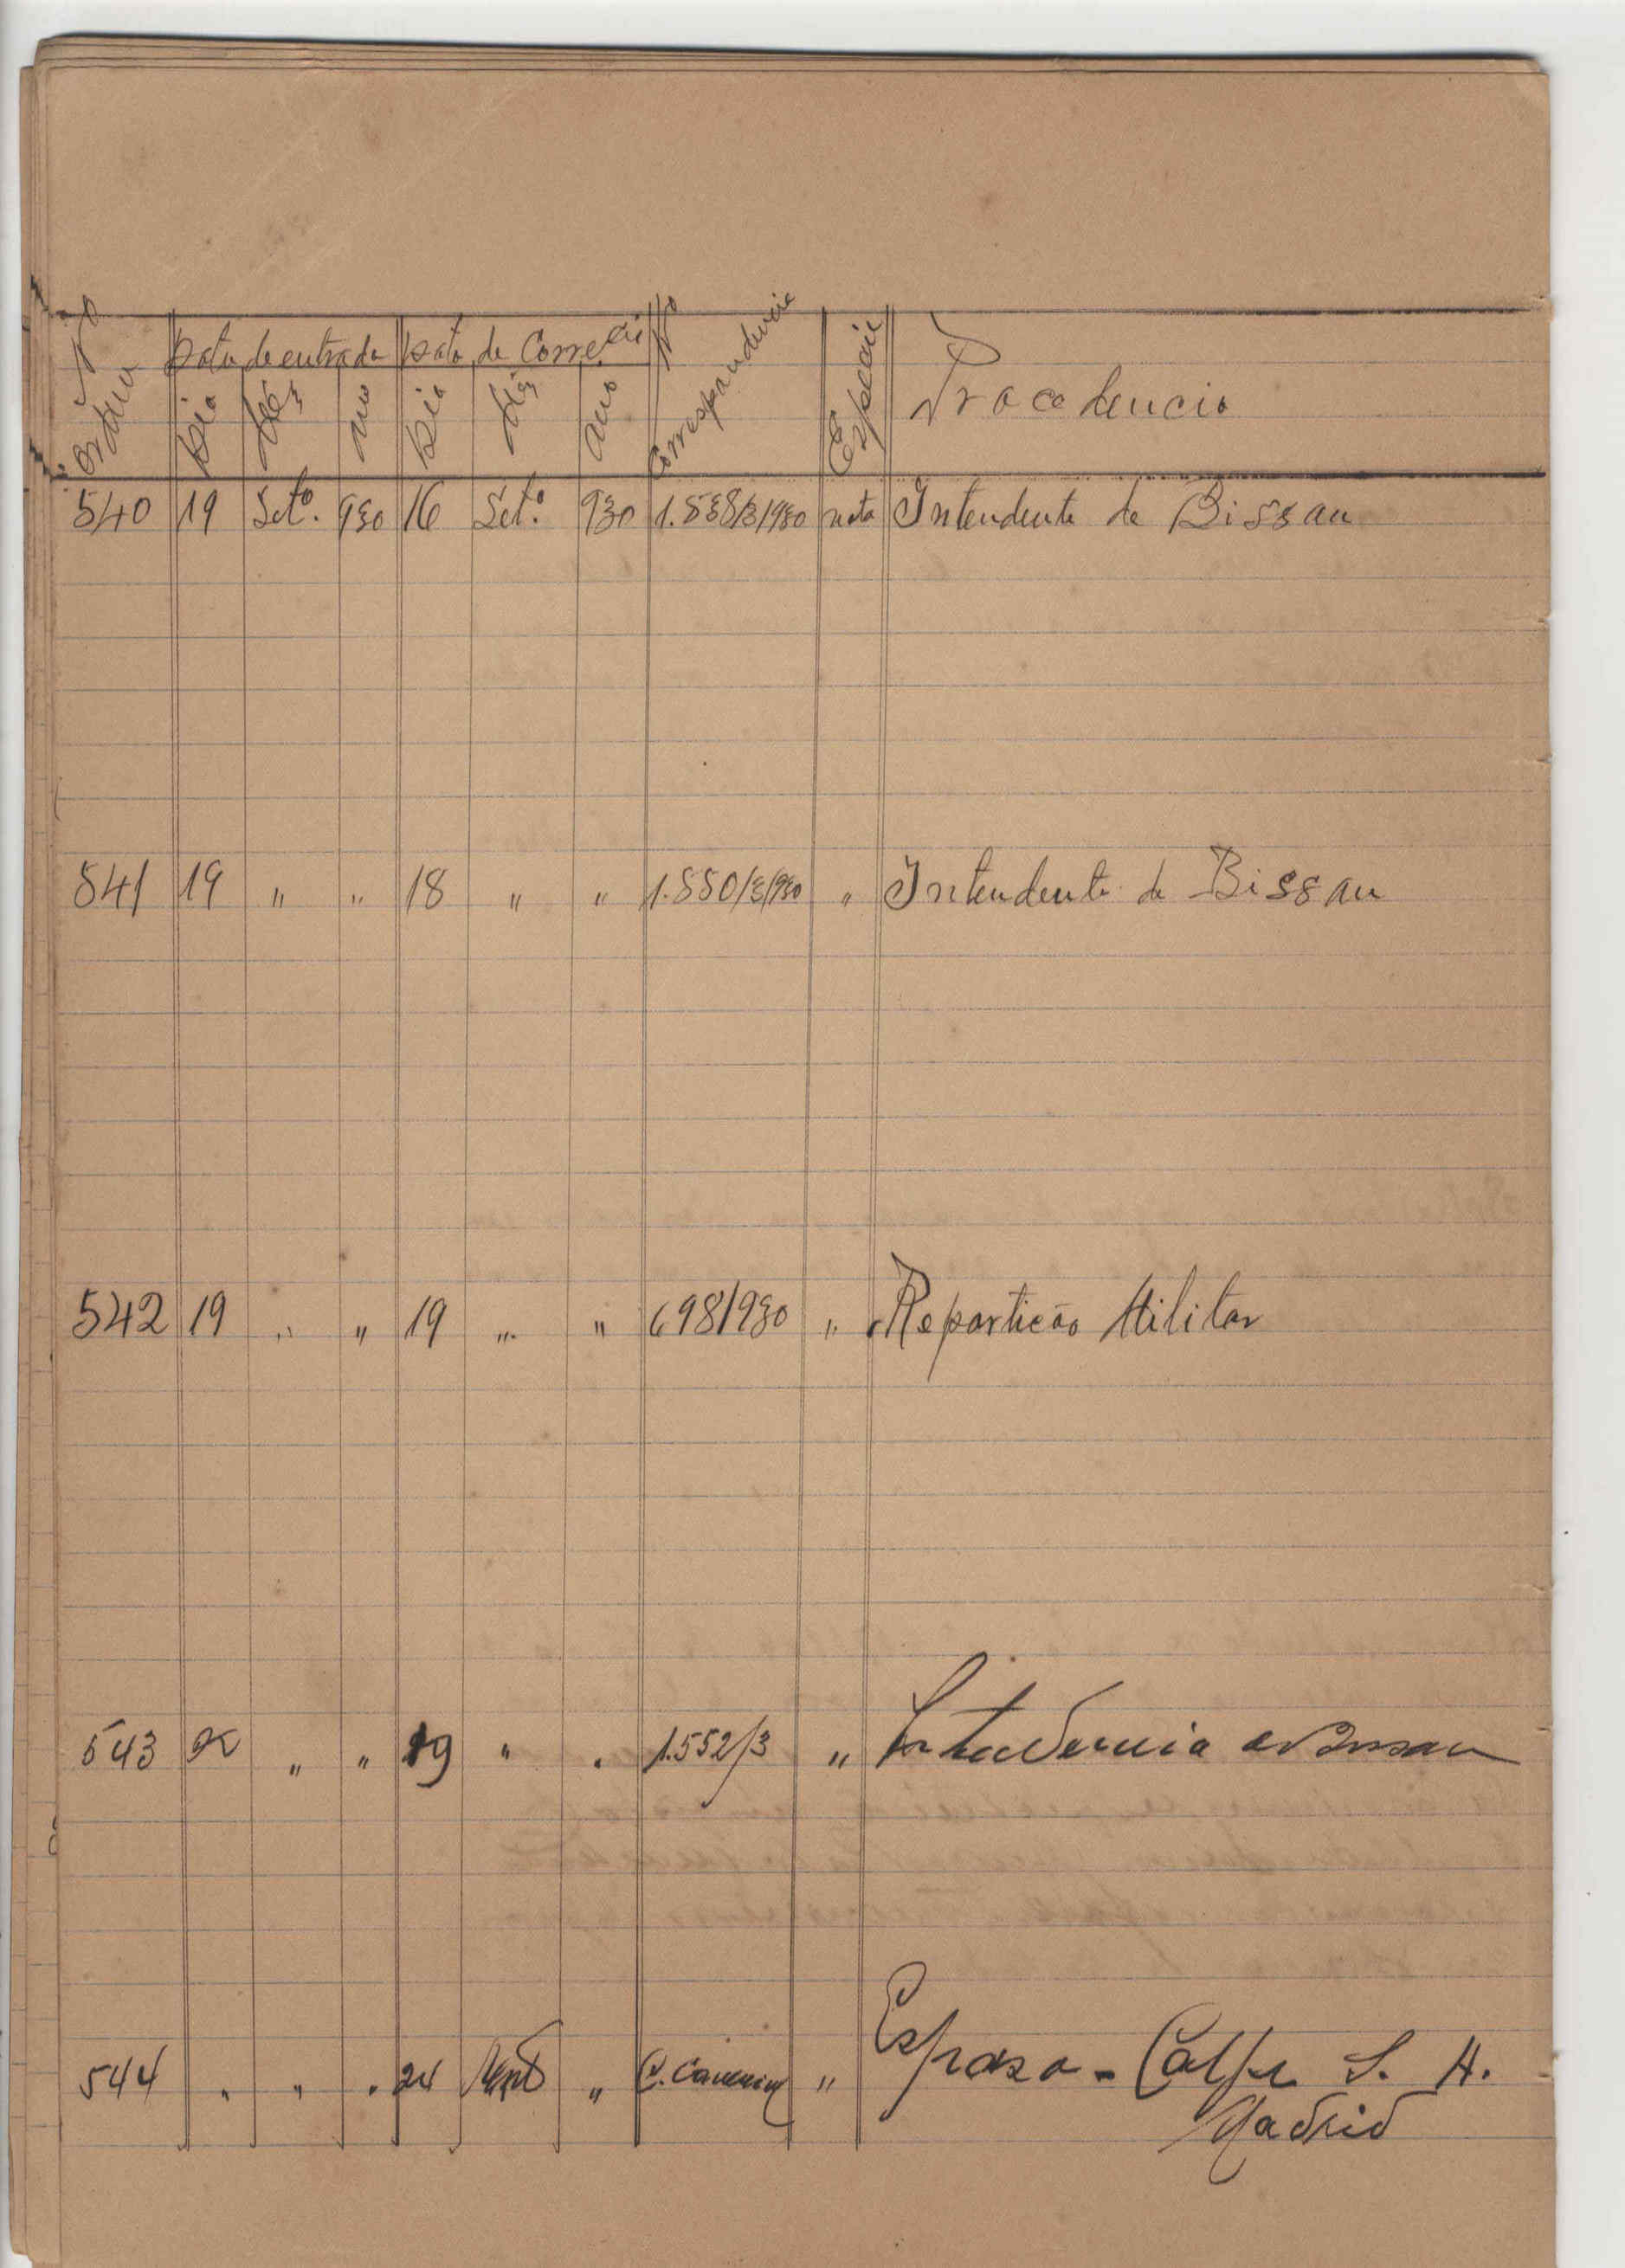 Nº Ordem | Data de entrada | Data de Corre.cia | Nº Correspondencia | Especie | Procedencia
Dia | Mês | Ano | Dia | Mês | Ano
540 | 19 | Set.º | 930 | 16 | Set.º | 930 | 1.538/3/930 | nota | Intendente de Bissau
541 | 19 | " | " | 18 | " | " | 1.550/3/930 | " | Intendente de Bissau
542 | 19 | " | " | 19 | " | " | 698/930 | " | Repartição Militar
543 | " | " | 19 | " | " | 1.552/3 | " | Intendencia de Bissau
544 | " | " | " | 24 | " | " | Espasa-Calpe S. A.
Madrid